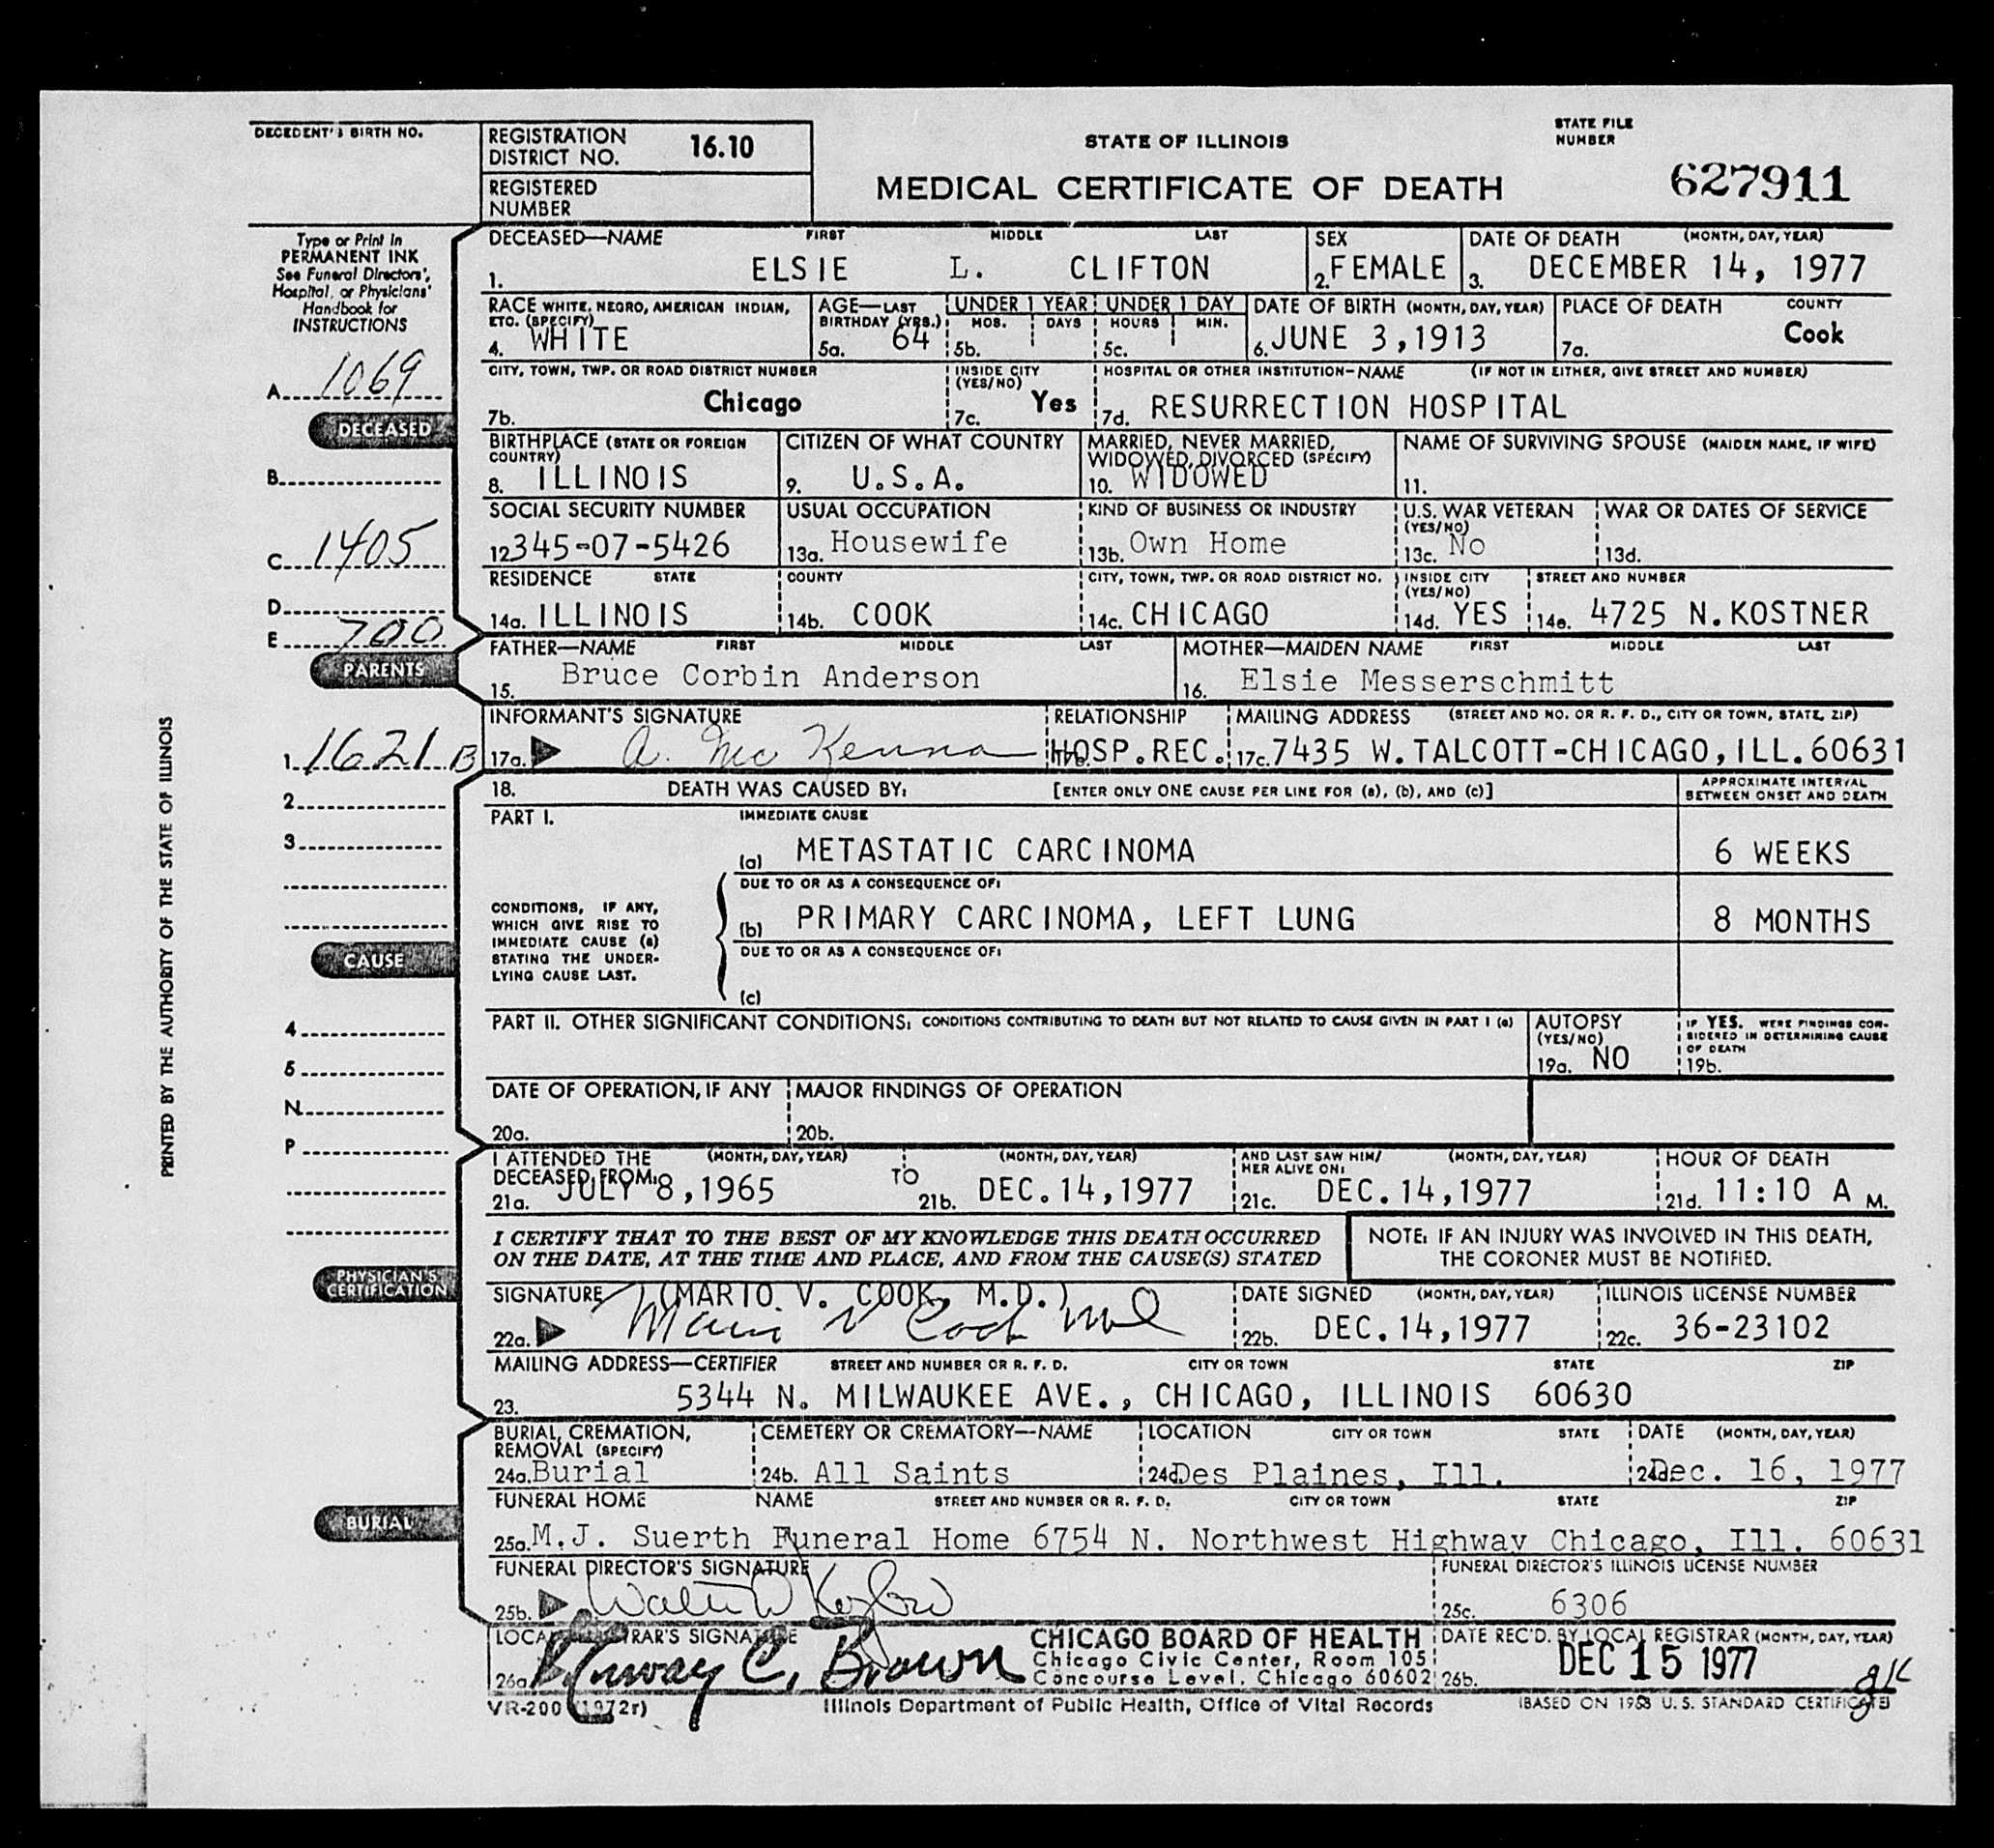 DECEDENT'S BIRTH NO.
REGISTRATION DISTRICT NO. 16.10
REGISTERED NUMBER
STATE OF ILLINOIS
MEDICAL CERTIFICATE OF DEATH
STATE FILE NUMBER
627911
Type or Print in
PERMANENT INK
See Funeral Directors',
Hospital, or Physicians'
Handbook for
INSTRUCTIONS
A. 1069
DECEASED
B.
C. 1405
D.
E 700
PARENTS
1. 1621 B
2
3
CAUSE
4
5
N
P
PHYSICIAN'S CERTIFICATION
BURIAL
PRINTED BY THE AUTHORITY OF THE STATE OF ILLINOIS
DECEASED—NAME FIRST MIDDLE LAST
1. ELSIE L. CLIFTON
SEX
2. FEMALE
DATE OF DEATH (MONTH, DAY, YEAR)
3. DECEMBER 14, 1977
RACE WHITE, NEGRO, AMERICAN INDIAN, ETC. (SPECIFY)
4. WHITE
AGE—LAST BIRTHDAY (YRS.)
5a. 64
UNDER 1 YEAR
MOS. DAYS
5b.
UNDER 1 DAY
HOURS MIN.
5c.
DATE OF BIRTH (MONTH, DAY, YEAR)
6. JUNE 3,1913
PLACE OF DEATH COUNTY
7a. Cook
CITY, TOWN, TWP. OR ROAD DISTRICT NUMBER
7b. Chicago
INSIDE CITY (YES/NO)
7c. Yes
HOSPITAL OR OTHER INSTITUTION—NAME (IF NOT IN EITHER, GIVE STREET AND NUMBER)
7d. RESURRECTION HOSPITAL
BIRTHPLACE (STATE OR FOREIGN COUNTRY)
8. ILLINOIS
CITIZEN OF WHAT COUNTRY
9. U.S.A.
MARRIED, NEVER MARRIED, WIDOWED, DIVORCED (SPECIFY)
10. WIDOWED
NAME OF SURVIVING SPOUSE (MAIDEN NAME, IF WIFE)
11.
SOCIAL SECURITY NUMBER
12 345-07-5426
USUAL OCCUPATION
13a. Housewife
KIND OF BUSINESS OR INDUSTRY
13b. Own Home
U.S. WAR VETERAN (YES/NO)
13c. No
WAR OR DATES OF SERVICE
13d.
RESIDENCE STATE
14a. ILLINOIS
COUNTY
14b. COOK
CITY, TOWN, TWP. OR ROAD DISTRICT NO.
14c. CHICAGO
INSIDE CITY (YES/NO)
14d. YES
STREET AND NUMBER
14e. 4725 N.KOSTNER
FATHER—NAME FIRST MIDDLE LAST
15. Bruce Corbin Anderson
MOTHER—MAIDEN NAME FIRST MIDDLE LAST
16. Elsie Messerschmitt
INFORMANT'S SIGNATURE
17a. A. Mc Kenna
RELATIONSHIP
17b. HOSP.REC.
MAILING ADDRESS (STREET AND NO. OR R. F. D., CITY OR TOWN, STATE, ZIP)
17c. 7435 W.TALCOTT-CHICAGO,ILL.60631
18. DEATH WAS CAUSED BY: [ENTER ONLY ONE CAUSE PER LINE FOR (a), (b), AND (c)]
APPROXIMATE INTERVAL BETWEEN ONSET AND DEATH
PART I. IMMEDIATE CAUSE
(a) METASTATIC CARCINOMA 6 WEEKS
DUE TO OR AS A CONSEQUENCE OF:
CONDITIONS, IF ANY,
WHICH GIVE RISE TO
IMMEDIATE CAUSE (a)
STATING THE UNDER-
LYING CAUSE LAST.
(b) PRIMARY CARCINOMA, LEFT LUNG 8 MONTHS
DUE TO OR AS A CONSEQUENCE OF:
(c)
PART II. OTHER SIGNIFICANT CONDITIONS: CONDITIONS CONTRIBUTING TO DEATH BUT NOT RELATED TO CAUSE GIVEN IN PART I (a)
AUTOPSY (YES/NO)
19a. NO
IF YES, WERE FINDINGS CON-
SIDERED IN DETERMINING CAUSE
OF DEATH
19b.
DATE OF OPERATION, IF ANY
20a.
MAJOR FINDINGS OF OPERATION
20b.
I ATTENDED THE DECEASED FROM: (MONTH, DAY, YEAR)
21a. JULY 8,1965
TO (MONTH, DAY, YEAR)
21b. DEC.14,1977
AND LAST SAW HIM/HER ALIVE ON: (MONTH, DAY, YEAR)
21c. DEC.14,1977
HOUR OF DEATH
21d. 11:10 A M.
I CERTIFY THAT TO THE BEST OF MY KNOWLEDGE THIS DEATH OCCURRED
ON THE DATE, AT THE TIME AND PLACE, AND FROM THE CAUSE(S) STATED
NOTE: IF AN INJURY WAS INVOLVED IN THIS DEATH,
THE CORONER MUST BE NOTIFIED.
SIGNATURE (MARIO V. COOK, M.D.)
22a. Mario V Cook MD
DATE SIGNED (MONTH, DAY, YEAR)
22b. DEC.14,1977
ILLINOIS LICENSE NUMBER
22c. 36-23102
MAILING ADDRESS—CERTIFIER STREET AND NUMBER OR R. F. D. CITY OR TOWN STATE ZIP
23. 5344 N. MILWAUKEE AVE., CHICAGO, ILLINOIS 60630
BURIAL, CREMATION, REMOVAL (SPECIFY)
24a. Burial
CEMETERY OR CREMATORY—NAME
24b. All Saints
LOCATION CITY OR TOWN STATE
24c Des Plaines, Ill.
DATE (MONTH, DAY, YEAR)
24d Dec. 16, 1977
FUNERAL HOME NAME STREET AND NUMBER OR R. F. D. CITY OR TOWN STATE ZIP
25a. M.J. Suerth Funeral Home 6754 N. Northwest Highway Chicago, Ill. 60631
FUNERAL DIRECTOR'S SIGNATURE
25b. Walter W
FUNERAL DIRECTOR'S ILLINOIS LICENSE NUMBER
25c. 6306
LOCAL REGISTRAR'S SIGNATURE
26a C. Brown
CHICAGO BOARD OF HEALTH
Chicago Civic Center, Room 105
Concourse Level, Chicago 60602
DATE REC'D. BY LOCAL REGISTRAR (MONTH, DAY, YEAR)
26b. DEC 15 1977
VR-200 (1972r)
Illinois Department of Public Health, Office of Vital Records
(BASED ON 1968 U.S. STANDARD CERTIFICATE)